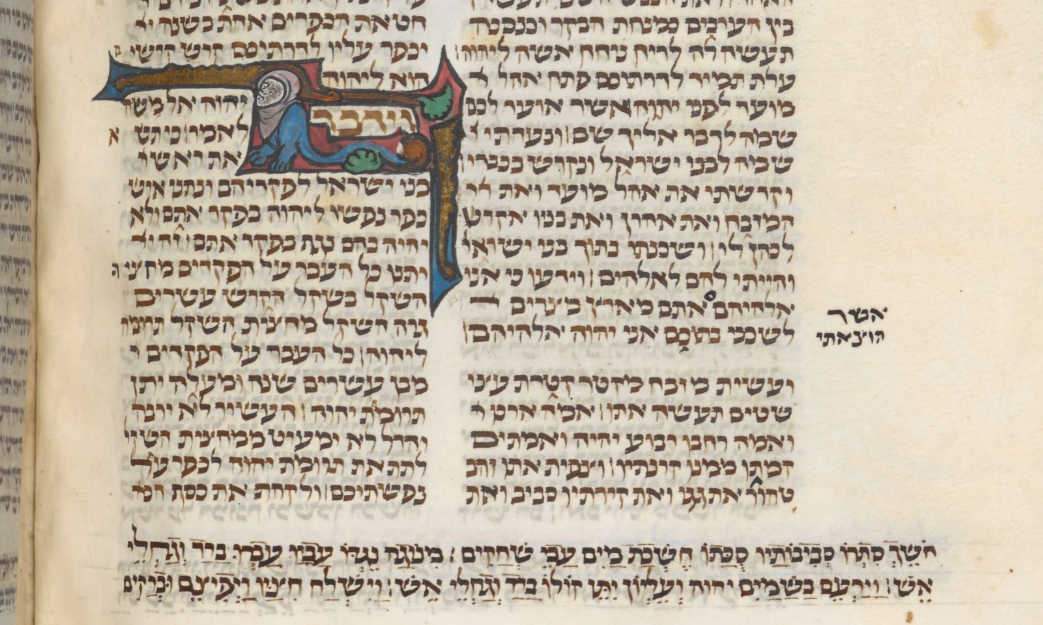 בין הערבים כמנחת הבקר וכנסכה
תעשה לה לריח ניחח אשה ליהוה
עלת תמיד לדרתיכם פתח אהל
מועד לפני יהוה אשר אועד לכם
שמה לדבר אליך שם ונעדתי
שמה לבני ישראל ונקדש בכבדי
וקדשתי את אהל מועד ואת
המזבח ואת אהרן ואת בניו אקדש
לכהן לי ושכנתי בתוך בני ישראל
והייתי להם לאלהים וידעו כי אני
אלהיהם אתם מארץ מצרים
לשכני בתוכם אני יהוה אלהיהם
אשר
הוצאתי
ועשית מזבח מקטר קטרת עצי
שטים תעשה אתו אמה ארכו
ואמה רחבו רבוע יהיה ואמתים
קמתו ממנו קרנתיו וצפית אתו זהב
טהור את גגו ואת קירתיו סביב ואת
חטאת הכפרים אחת בשנה
יכפר עליו לדרתיכם קדש קדשי
הוא ליהוה
וידבר
יהוה אל משה
לאמר כי תשא
את ראש
בני ישראל לפקדיהם ונתנו איש
כפר נפשו ליהוה בפקד אתם ולא
יהיה בהם נגף בפקד אתם זה
יתנו כל העבר על הפקדים מחצית
השקל בשקל הקדש עשרים
גרה השקל מחצית השקל תרומה
ליהוה כל העבר על הפקדים
מבן עשרים שנה ומעלה יתן
תרומת יהוה העשיר לא ירבה
והדל לא ימעיט ממחצית השקל
לתת את תרומת יהוה לכפר על
נפשתיכם ולקחת את כסף
חשך סתרו סביבותיו סכתו חשכת מים עבי שחקים׃ מנוגה נגדו עביו עברו ברד וגחלי
אש׃ וירעם בשמים יהוה ועליון יתן קולו ברד וגחלי אש׃ וישלח חיציו ויפיצם וברקים